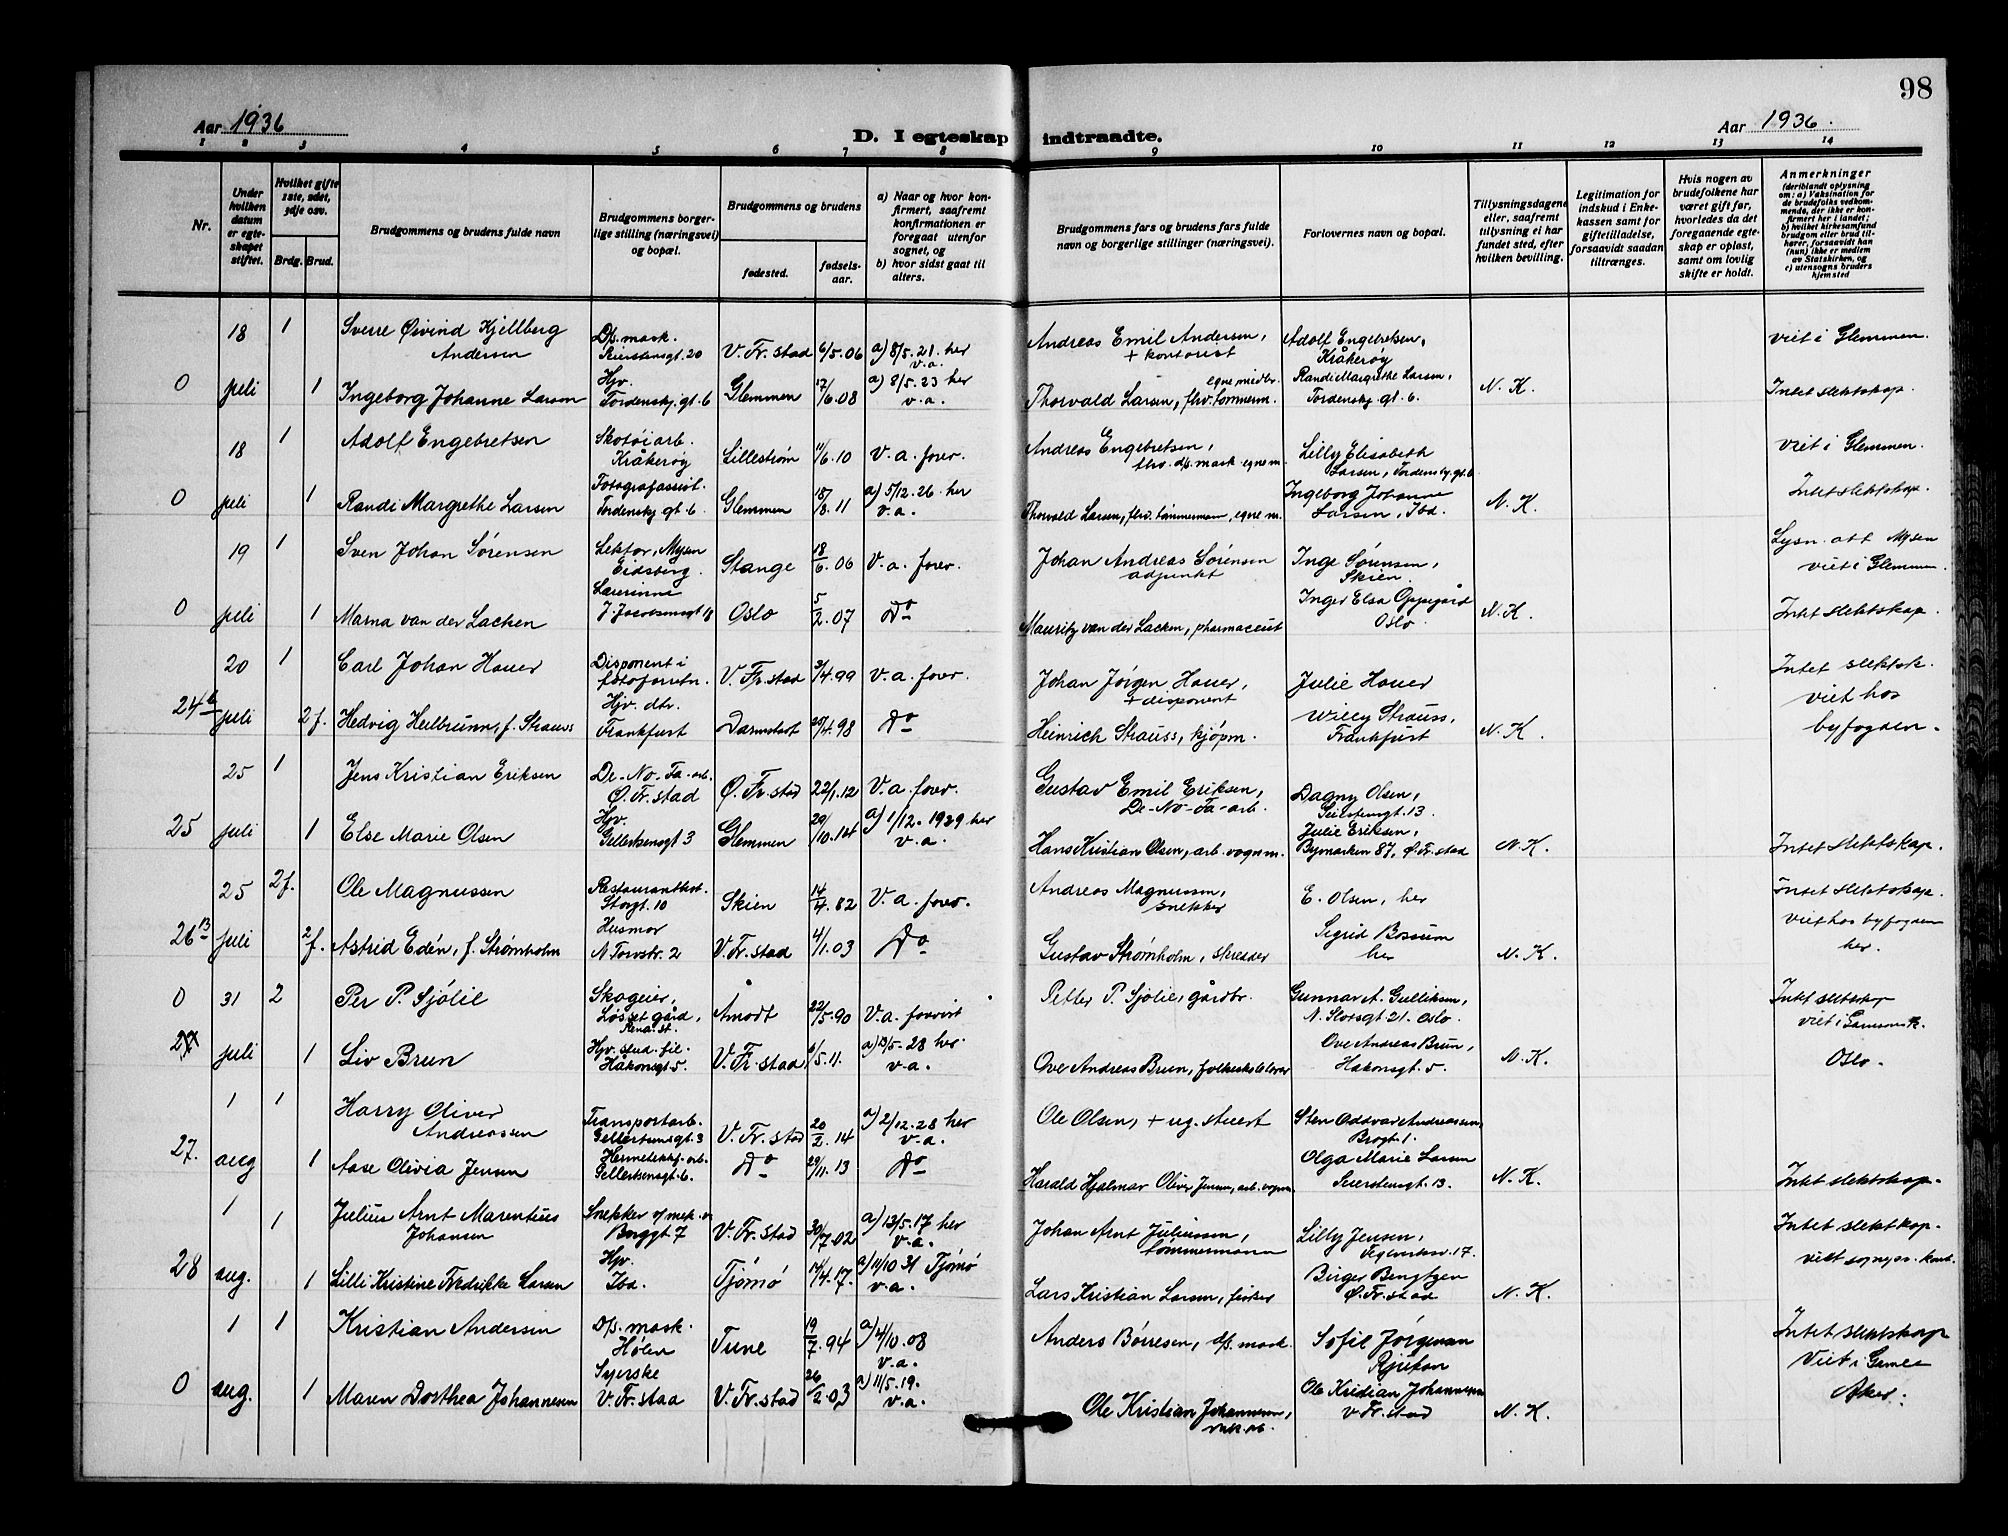 98
Aar 1936
D. I egteskap indtraadte.
Aar 1936.
1 2 3 4 5 6 7 8 9 10 11 12 13 14
Nr.
Under hvilken datum er egteskapet stiftet.
Hvilket gifte 1ste, 2det, 3dje osv.
Brdg. Brud.
Brudgommens og brudens fulde navn
Brudgommens borgerlige stilling (næringsvei) og bopæl.
Brudgommens og brudens
fødested. fødselsaar.
a) Naar og hvor konfirmert, saafremt konfirmationen er foregaat utenfor sognet, og
b) hvor sidst gaat til alters.
Brudgommens fars og brudens fars fulde navn og borgerlige stillinger (næringsvei).
Forlovernes navn og bopæl.
Tillysningsdagene eller, saafremt tillysning ei har fundet sted, efter hvilken bevilling.
Legitimation for indskud i Enkekassen samt for giftetilladelse, forsaavidt saadan tiltrænges.
Hvis nogen av brudefolkene har været gift før, hvorledes da det foregaaende egteskap er opløst, samt om lovlig skifte er holdt.
Anmerkninger
(deriblandt oplysning om: a) Vaksination for de brudefolks vedkommende, der ikke er konfirmert her i landet; b) hvilket kirkesamfund brudgom eller brud tilhører, forsaavidt han (hun) ikke er medlem av Statskirken, og c) utensogns bruders hjemsted
18 1 Sverre Øivind Kjellberg Andersen D/s. mask. Seierstensgt. 20 V. Fr. stad 6/5.06 a) 8/5.21. her v.a. Andreas Emil Andersen, + kontorist Adolf Engebretsen, Kråkerøy viet i Glemmen.
0 juli 1 Ingeborg Johanne Larsen Hjv. Tordenskj. gt. 6 Glemmen 17/6.08 a) 8/5.23 her v.a. Thorvald Larsen, fhv. tømmerm. egne midler. Randi Margrethe Larsen, Tordenskj. gt. 6. N. K. Intet slektskap.
18 1 Adolf Engebretsen Skotøiarb. Kråkerøy Lillestrøm 11/6.10 v.a. forev. Andreas Engebretsen, fhv. d/s. mask egne m. Lilly Elisabeth Larsen, Tordenskj. gt. 6 viet i Glemmen.
0 juli 1 Randi Margrethe Larsen Fotografassist. Tordenskj. gt. 6. Glemmen 18/8.11 a) 5/12.26. her v.a. Thorvald Larsen, fhv. tømmermann, egne m. Ingeborg Johanne Larsen, Ibd. N. K. Intet slektskap.
19 1 Sven Johan Sørensen Lektor, Mysen Eidsberg. Stange 18/6.06 v.a. forev. Johan Andreas Sørensen adjunkt Inge Sørensen, Skien. Lysn. att Mysen viet i Glemmen.
0 juli 1 Marna van der Lacken Lærerinne J. Jacobsensgt 18 Oslo 5/2.07 Do Mauritz van der Lacken, pharmaceut Inger Elsa Oppegård Oslo N. K. Intet slektskap.
20 1 Carl Johan Hauer Disponent i fotoforretn. V. Fr. stad 3/4.99 v.a. forev. Johan Jørgen Hauer, + disponent Julie Hauer Intet slektsk.
24 juli 2 f. Hedvig Heilbrunn, f. Strauss Hjv. dtr. Frankfurt Darmstadt 20/4.98 Do Heinrich Strauss, kjøpm. Willy Strauss, Frankfurt N. K. viet hos byfogden.
25 1 Jens Kristian Eriksen De-No-Fa-arb. Ø. Fr. stad Ø. Fr. stad 22/1.12 v.a. forev. Gustav Emil Eriksen, De-No-Fa-arb. Dagny Olsen, Seierstengt. 13.
25 juli 1 Else Marie Olsen Hjv. Gellertsensgt 3 Glemmen 29/10.14 a) 1/12-1929 her v.a. Hans Kristian Olsen, arb. vognm. Julie Eriksen, Bymarken 87, Ø. Fr. stad N. K. Intet slektskap.
25 2 f. Ole Magnussen Restauranthot. Storgt. 10 Skien 14/4.82 v.a. forev. Andreas Magnussen, snekker E. Olsen, her Intet slektskap.
26 13 juli 2 f. Astrid Edén, f. Strømholm Husmor N. Torvstr. 2 V. Fr. stad 4/1.03 Do Gustav Strømholm, skredder Sigrid Bossum her N. K. viet hos byfogden her.
0 31 2 Per P. Sjølie Skogeier, Løsset gård, Rena st. Åmodt 22/5.90 v.a. forevist Petter P. Sjølie, gårdbr. Gunnar A. Gulliksen, N. Slotsgt 21. Oslo. Intet slektskap
27 juli 1 Liv Brun Hjv. stud. fil. Håkonsgt 5. V. Fr. stad 6/5.11. a) 13/5-28 her. v.a. Ove Andreas Brun, folkeskolelærer Ove Andreas Brun, Håkonsgt. 5. N. K. viet i Oslo.
1 1 Harry Oliver Andreassen Transportarb. Gellertsensgt. 3 V. Fr. stad 20/2.14 a) 2/12.28 her v.a. Ole Olsen, + ug. stuert Sten Oddvar Andreassen, Brogt. 1.
27. aug 1 Aase Olivia Jensen Hermetikkf. arb. Gellertsensgt. 6. Do 29/11.13 Do Harald Hjalmar Oliver Jensen, arb. vognm. Olga Marie Larsen Seierstensgt. 13. N. K. Intet slektskap.
1 1 Julius Arnt Marentius Johansen Snekker Borggt 7 V. Fr. stad 30/7.02 a) 13/5.17 her v.a. Johan Arnt Juliussen, tømmermann Lilly Jensen, 17. Intet slektskap.
28 aug. 1 Lilli Kristine Fredrikke Larsen Hjv. Ibd. Tjømø 14/4.17. a) 11/10 31 Tjømø v.a. Lars Kristian Larsen, fisker Birger Bengtzen Ø. Fr. stad N. K. viet sognpr. kont.
1 1 Kristian Andersen D/s. mask. Hølen Tune 19/7.94 a) 4/10.08 v.a. Anders Børresen, d/s. mask. Sofie Jørgensen Rjukan Intet slektskap
0 aug. 1 Maren Dorthea Johannesen Syerske V. Fr. stad V. Fr. stad 26/2.03 a) 11/5.19. v.a. Ole Kristian Johannesen, Ole Kristian Johannesen V Fr. stad N. K. Viet i Gamle Aker.